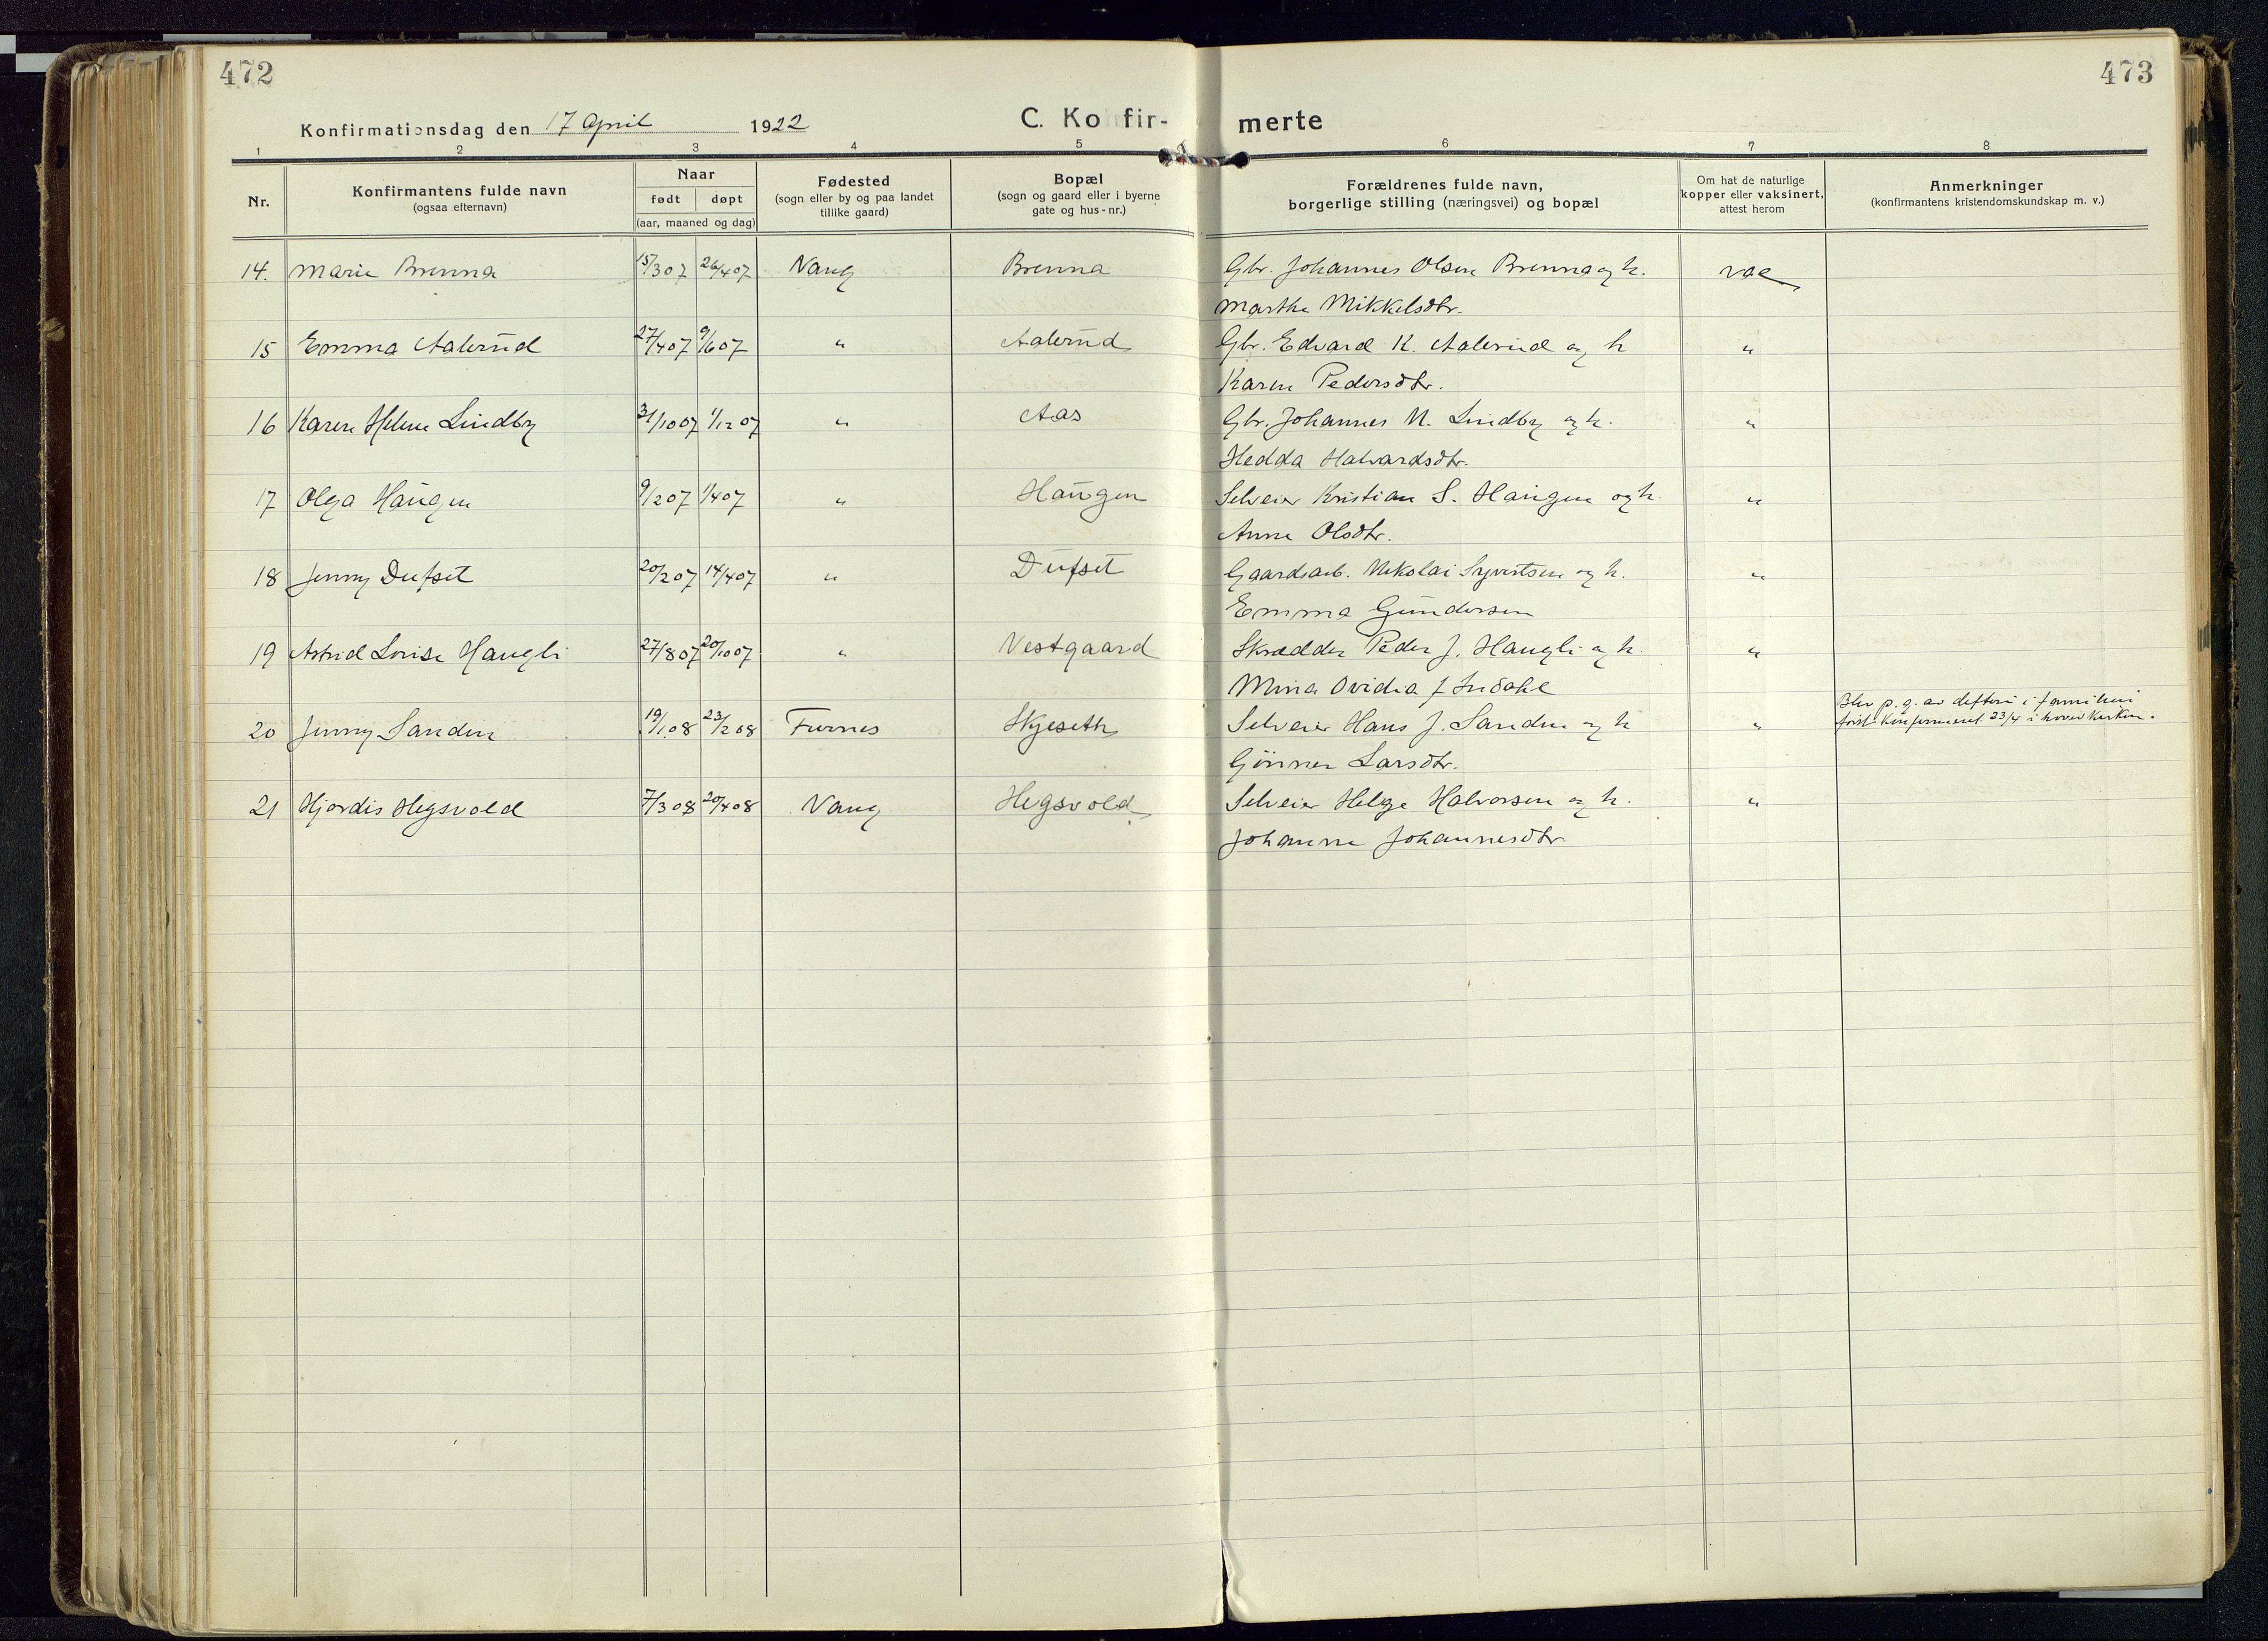 472
473
Konfirmationsdag den 17 April 1922
C. Konfir- merte
1 2 3 4 5 6 7 8
Nr.
Konfirmantens fulde navn
(ogsaa efternavn)
Naar
født døpt
(aar, maaned og dag)
Fødested
(sogn eller by og paa landet
tillike gaard)
Bopæl
(sogn og gaard eller i byerne
gate og hus-nr.)
Forældrenes fulde navn,
borgerlige stilling (næringsvei) og bopæl
Om hat de naturlige
kopper eller vaksinert,
attest herom
Anmerkninger
(konfirmantens kristendomskundskap m. v.)
14. Marie Brenna 15/3 07 26/4 07 Vang Brenna Gbr. Johannes Olsen Brenna og h. vac
Marthe Mikkelsdtr.
15 Emma Aalerud 27/4 07 9/6 07 " Aalerud Gbr. Edvard K. Aalerud og h "
Karen Pedersdtr.
16 Karen Helene Lindby 31/10 07 1/12 07 " Aas Gbr. Johannes N. Lindby og h. "
Hedda Halvardsdtr.
17 Olga Haugen 9/2 07 1/4 07 " Haugen Selveier Kristian S. Haugen og h. "
Anne Olsdtr.
18 Jenny Dufset 20/2 07 14/4 07 " Dufset Gaardsarb. Nikolai Syvertsen og h. "
Emma Gundersen
19 Astrid Lovise Haugli 27/8 07 20/10 07 " Vestgaard Skrædder Peder J. Haugli og h. "
Mina Ovidia f Indahl
Blev p. g. av difteri i familien
20 Jenny Sanden 19/1 08 23/2 08 Furnes Skjeseth Selveier Hans J. Sanden og h " først konfirmeret 23/4 i hovedkirken.
Gönner Larsdtr.
21 Hjørdis Hegsvold 7/3 08 20/4 08 Vang Hegsvold Selveier Helge Halvorsen og h. "
Johanne Johannesdtr.